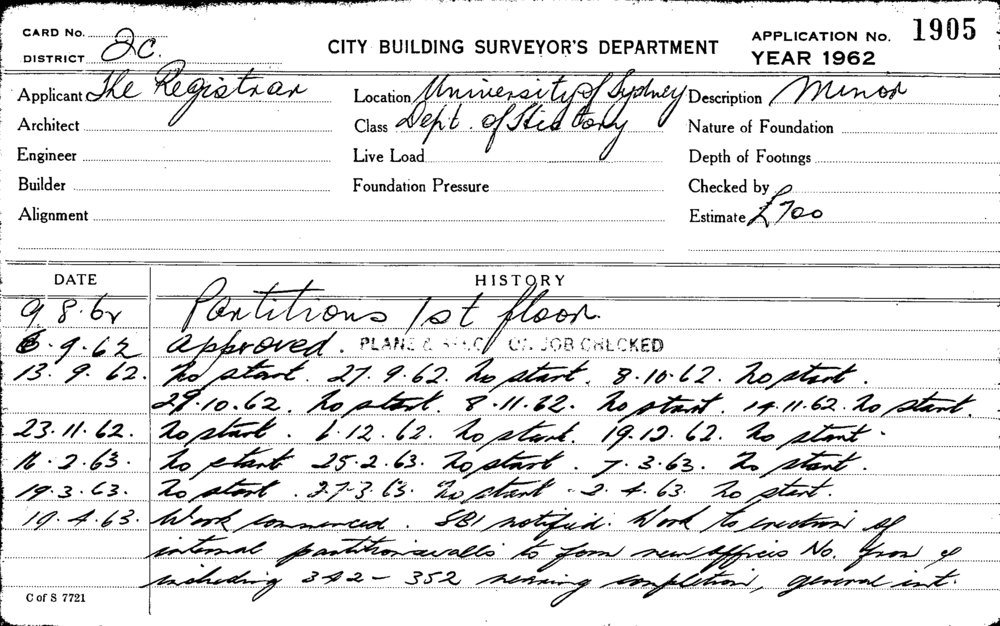 CARD No. 2c.
DISTRICT
CITY BUILDING SURVEYOR'S DEPARTMENT
APPLICATION No. 1905
YEAR 1962
Applicant The Registrar
Location University of Sydney
Description Minor
Architect
Class Dept. of History
Nature of Foundation
Engineer
Live Load
Depth of Footings
Builder
Foundation Pressure
Checked by
Alignment
Estimate £700
DATE HISTORY
9 8.62 Partitions 1st floor.
6.9.62 Approved. PLANS & SPEC ON JOB CHECKED
13.9.62. No start. 27.9.62. No start. 8.10.62. No start.
29.10.62. No start. 8.11.62. No start. 14.11.62. No start.
23.11.62. No start. 6.12.62. No start. 19.12.62. No start.
2.63. No start 25.2.63. No start. 7.3.63. No start.
19.3.63. No start. 27.3.63. No start. 2.4.63. No start.
19.4.63. Work commenced. SBI notified. Work to erection of
internal partition walls to form new offices No. from &
including 342 – 352 nearing completion, general int.
C of S 7721